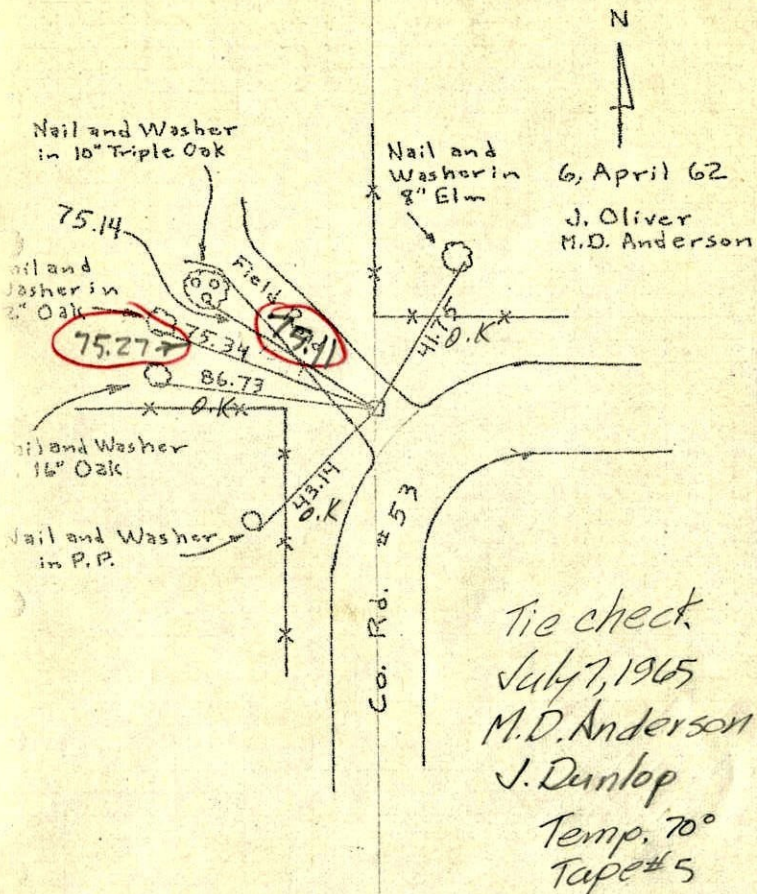 N
Nail and Washer
in 10" Triple Oak
Nail and
Washer in
8" Elm
6, April 62
J. Oliver
M.D. Anderson
75.14
Field
75.11
75.27
75.34
41.75
O.K
86.73
O.K
Oak
and Washer
16" Oak
43.14
O.K
Nail and Washer
in P.P.
Co. Rd. #53
Tie check.
July 7, 1965
M.D. Anderson
J. Dunlop
Temp. 70°
Tape #5